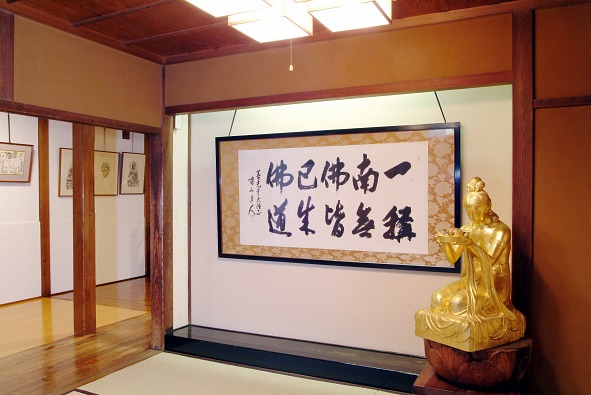 一稱
南無
佛皆
已成
佛道